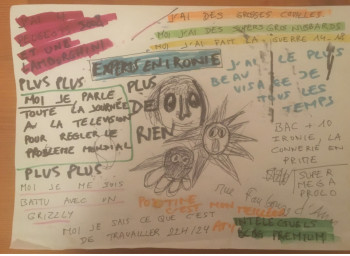 J'AI DES GROSSES
MOI J'AI DES SUPERS GROS
MOI J'AI FAIT LA GUERRE 14-18
ET UNE
LAMBORGHINI
EXPERTS EN IRONIE
J'AI LE PLUS
BEAU
VISAGE DE
TOUS LES
TEMPS
PLUS PLUS PLUS
DE
RIEN
MOI JE PARLE
TOUTE LA JOURNÉE
A LA TELEVISION
POUR REGLER LE
PROBLEME MONDIAL
BAC + 10
IRONIE, LA
CONNERIE EN
PRIME
PLUS PLUS
MOI JE ME SUIS
BATTU AVEC UN
GRIZZLY
SUPER
MEGA
PROLO
POUTINE
C'EST MON
MOI JE SAIS CE QUE C'EST
DE TRAVAILLER 22H/24
INTELLECTUELS
PREMIUM